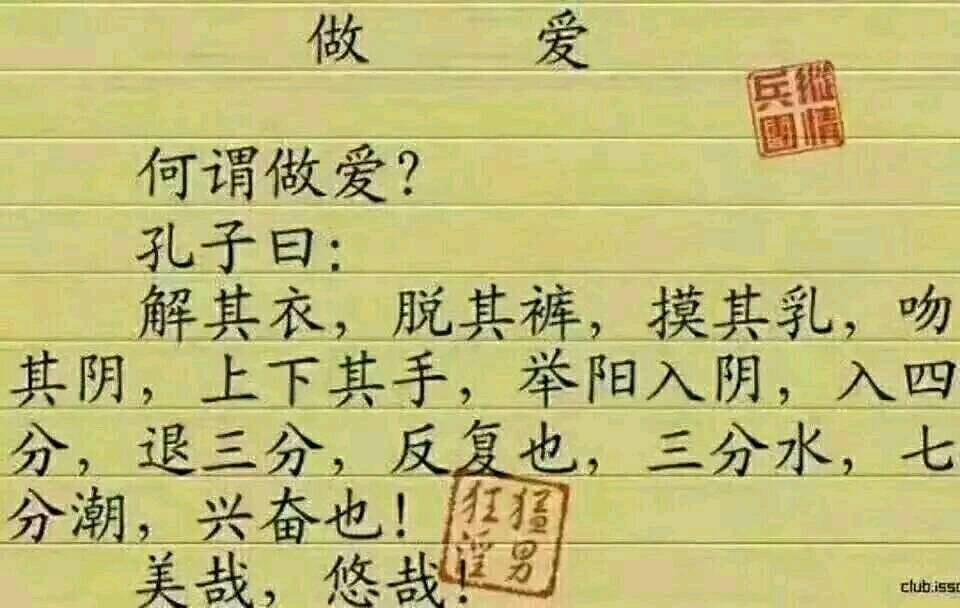 做 爱
兵團 縱情
何谓做爱？
孔子曰：
解其衣，脱其裤，摸其乳，吻
其阴，上下其手，举阳入阴，入四
分，退三分，反复也，三分水，七
分潮，兴奋也！
狂淫 猛男
美哉，悠哉！
club.iss